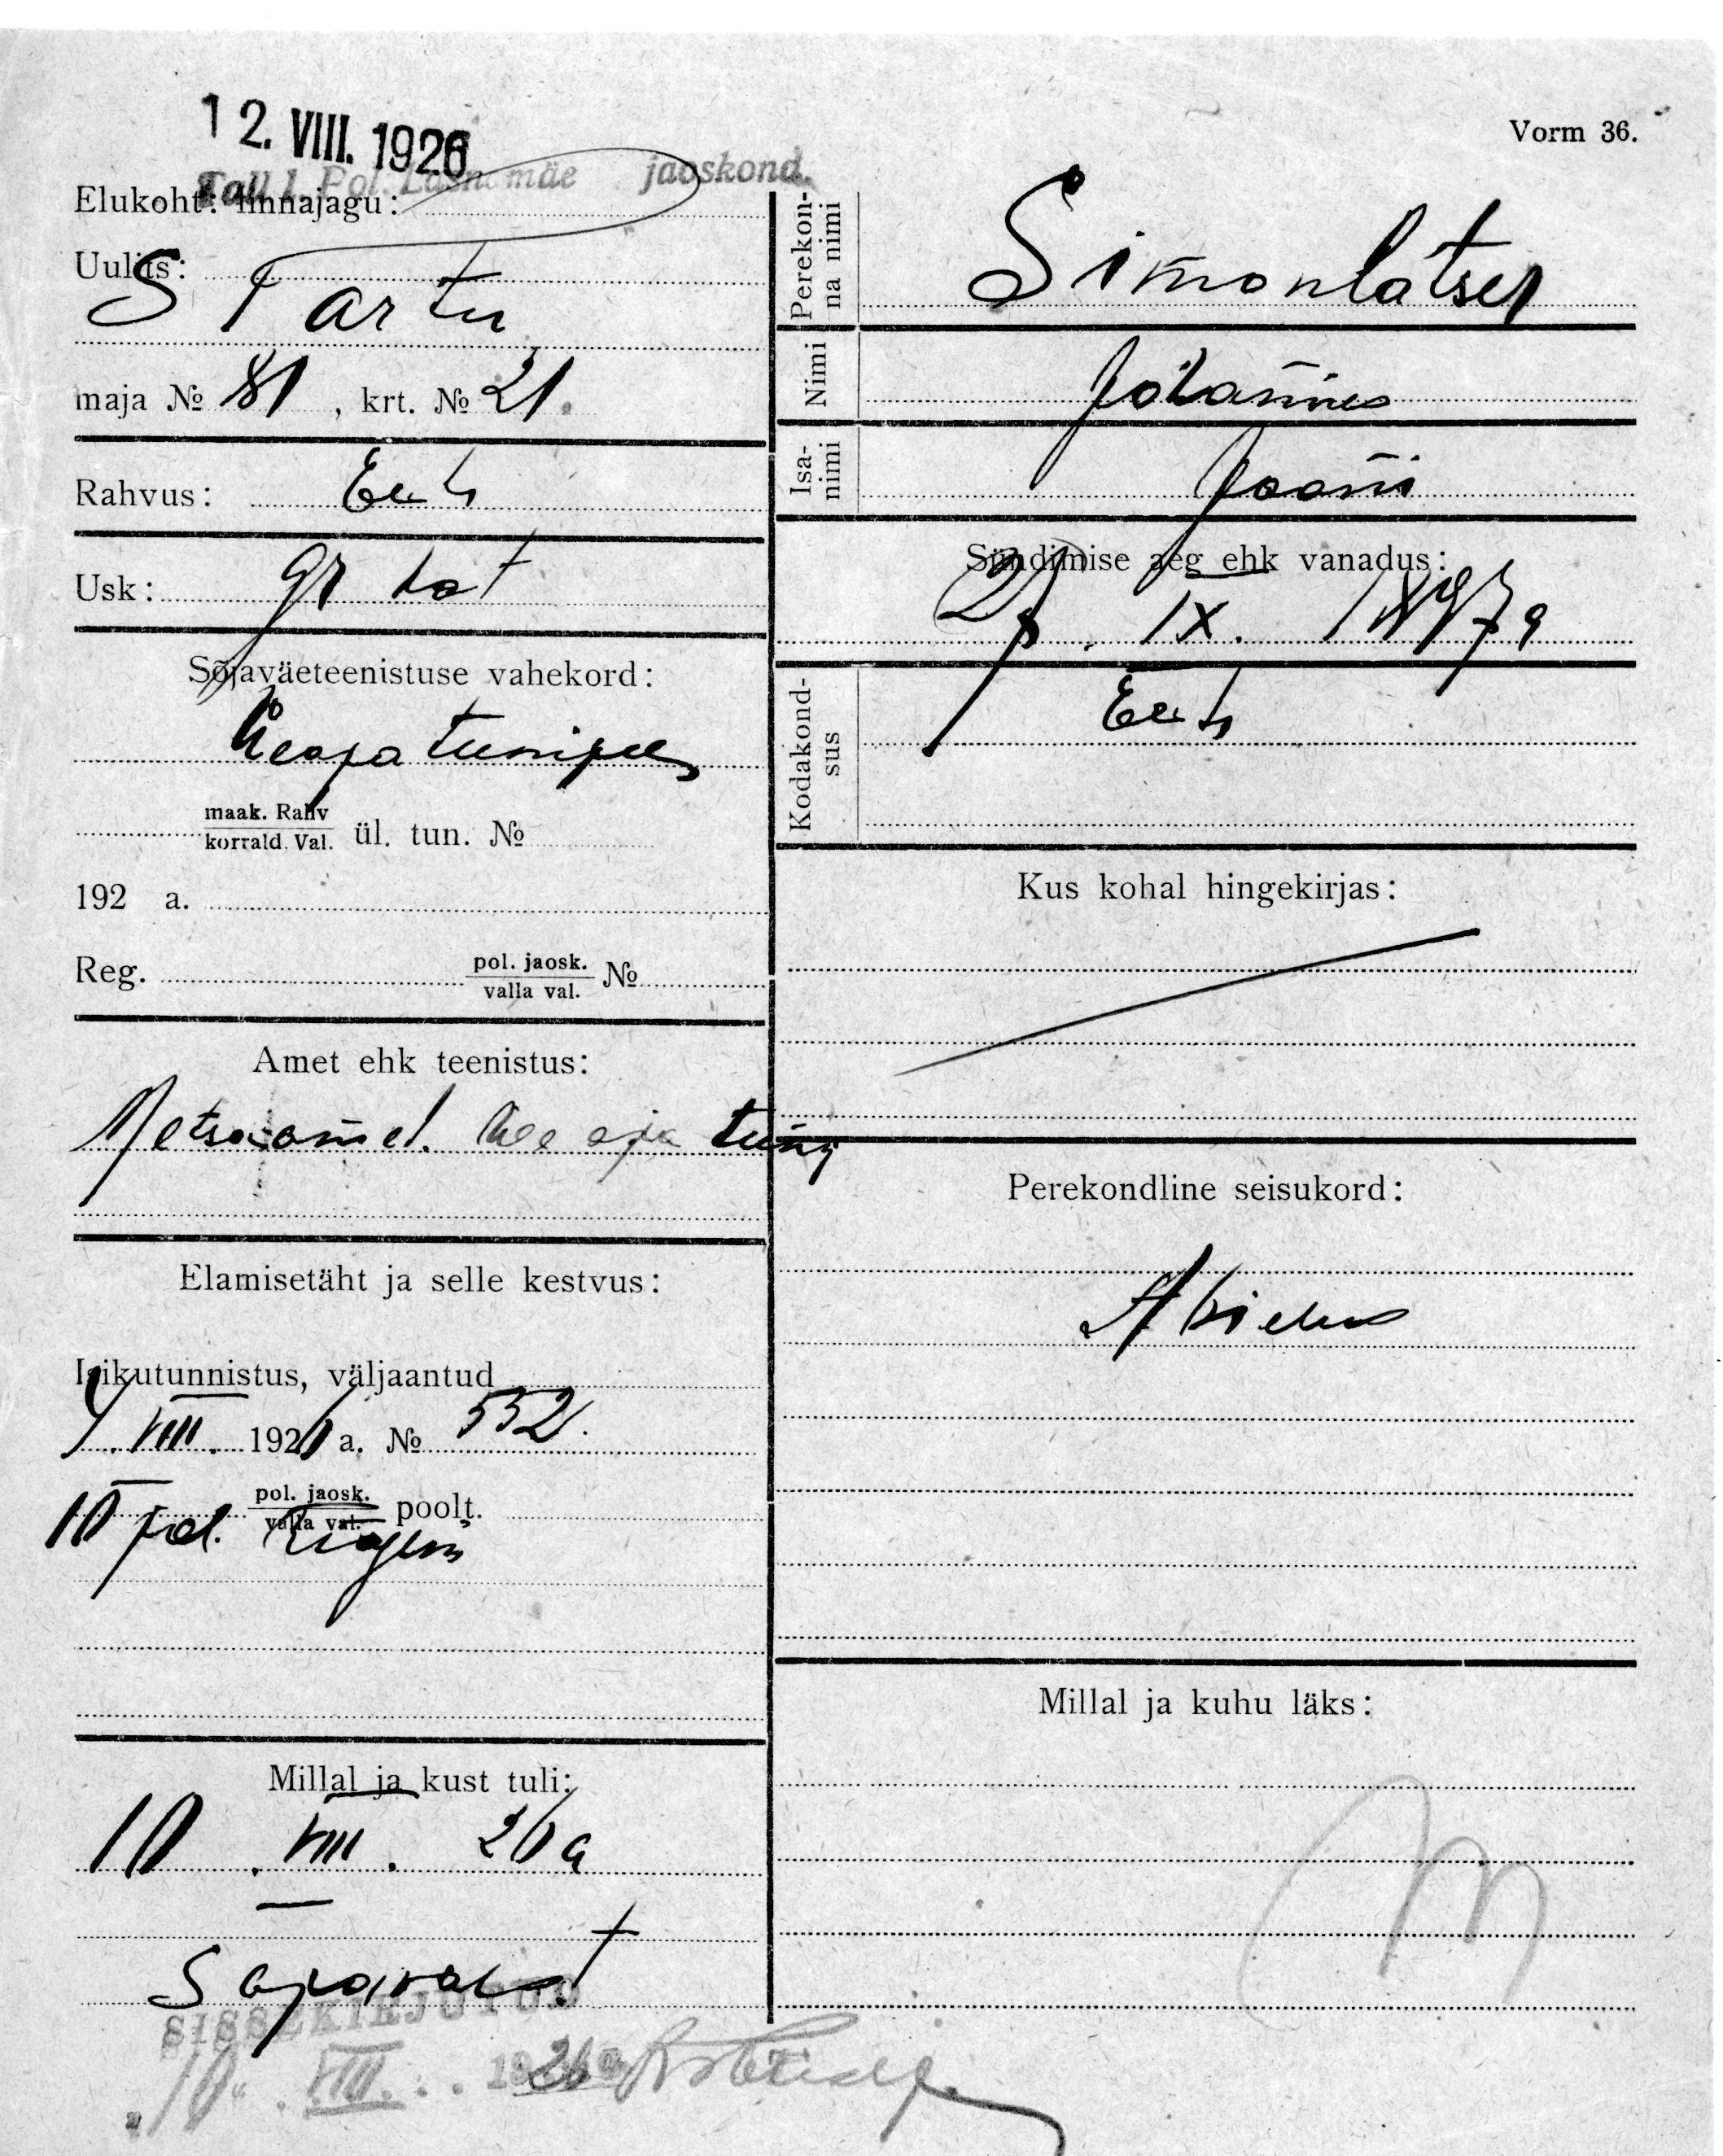 12. VIII. 1926
Vorm 36.
Tall. l. Pol. Lasnamäe jaoskond.
Elukoht: linnajagu:
Uulits:
S Tartu
maja № 81, krt. № 21.
Rahvus: Eesti
Usk: gr kat
Sõjaväeteenistuse vahekord:
maak. Rahv
korrald. Val. ül. tun. №
192 a.
Reg. pol. jaosk. №
valla val.
Amet ehk teenistus:
Metsaamet.
Elamisetäht ja selle kestvus:
Isikutunnistus, väljaantud
VIII. 1926 a. № 552.
pol. jaosk.
valla val. poolt.
pol.
Millal ja kust tuli:
10. VIII. 26 a
SISSEKIRJUTUD
"10" VIII. 1926
Perekon-
na nimi
Simonlatser
Nimi
Johannes
Isa-
nimi
Jaani
Sündimise aeg ehk vanadus:
IX. 1897 a
Kodakond-
sus
Eesti
Kus kohal hingekirjas:
Perekondline seisukord:
Abielus
Millal ja kuhu läks: